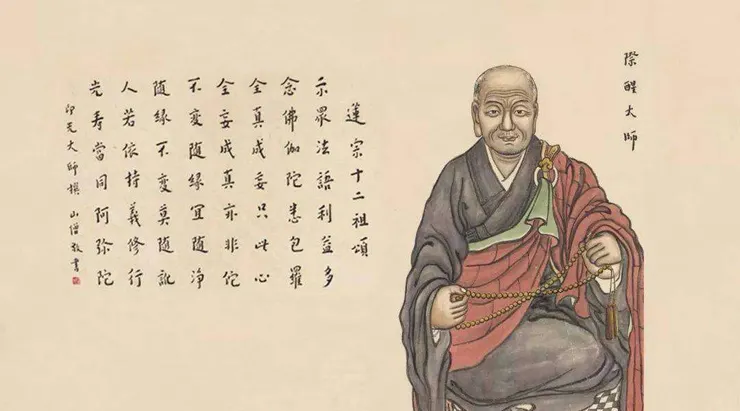 際醒大師
蓮宗十二祖頌
示眾法語利益多
念佛伽陀悉包羅
全真成妄只此心
全妄成真亦非佗
不變隨緣冝隨淨
隨緣不變莫隨訛
人若依持義修行
光壽當同阿弥陀
印光大師撰 山僧敬書